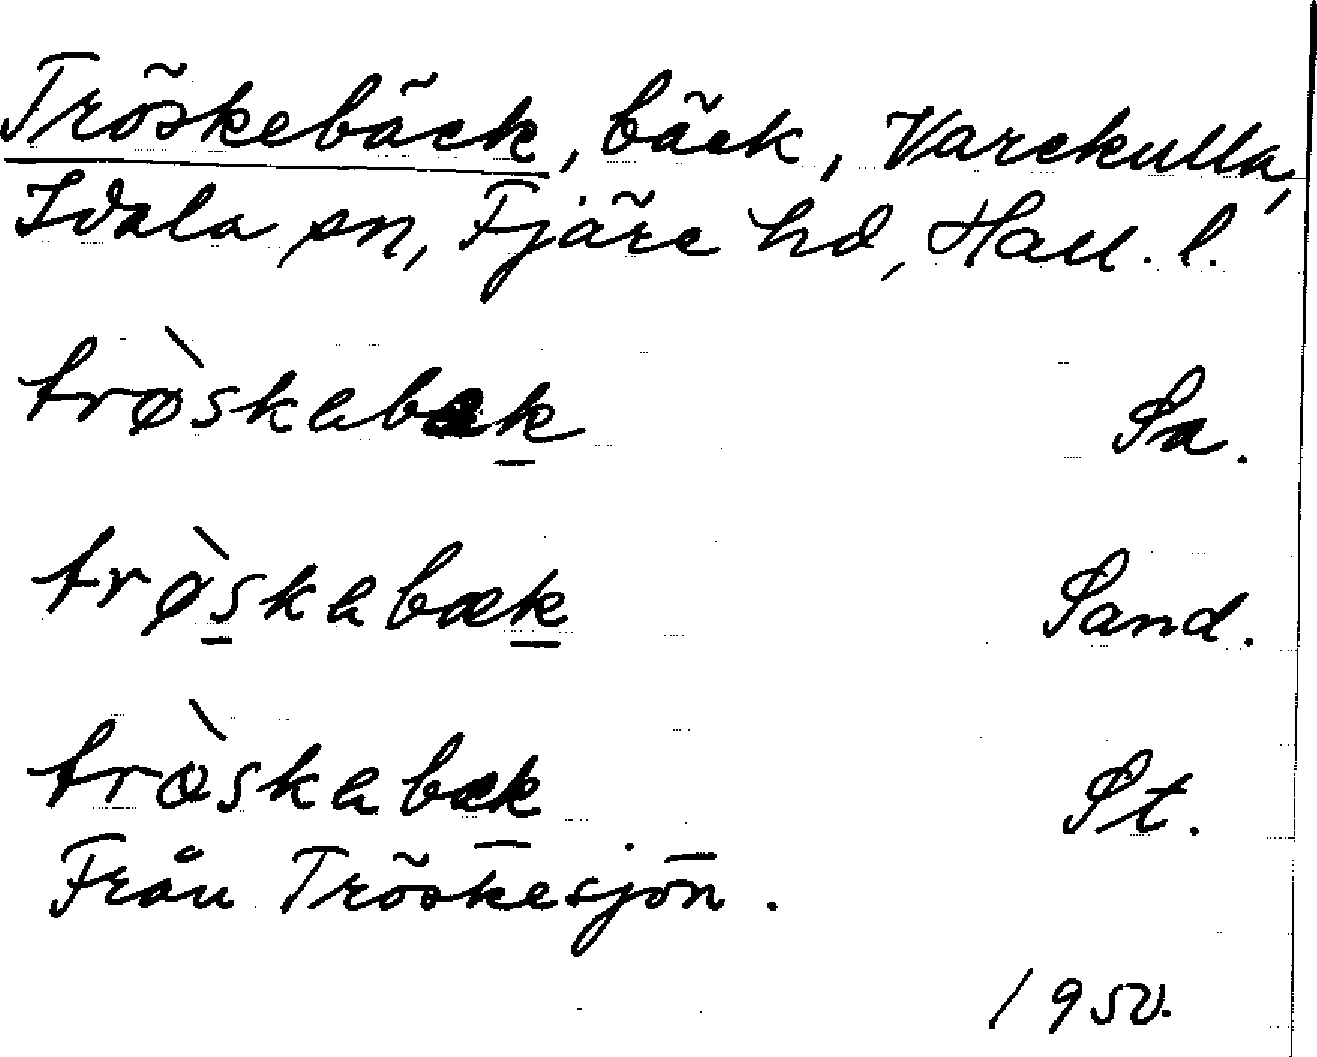 Tröskebäck, bäck, Varekulla,
Idala sn, Fjäre hd, Hall. l.
trø̀skabæk Sa.
trø̀skabæk Sand.
trö̀skabæk St.
Från Tröskesjön.
1950.